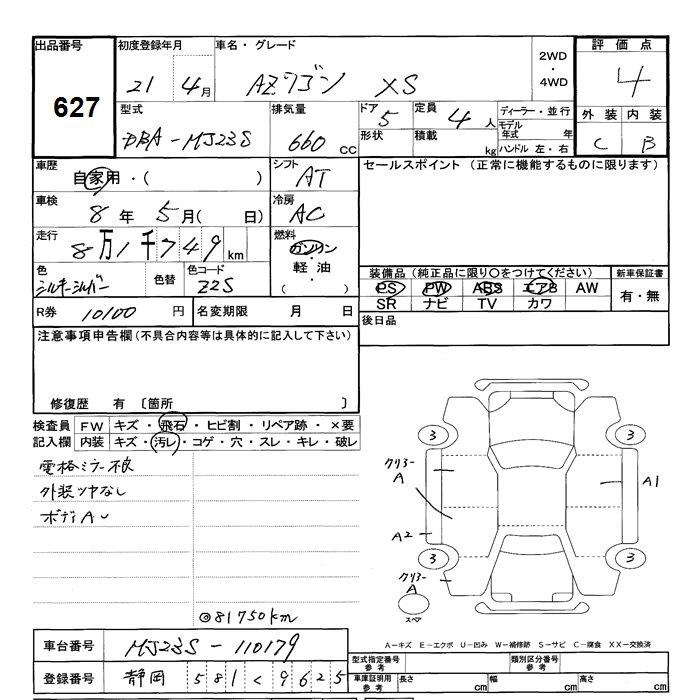 出品番号 初度登録年月 車名・グレード 2WD・4WD 評価点
627 21 4月 AZワゴン XS 4
型式 排気量 ドア 5 定員 4人 ディーラー・並行 外装 内装
DBA-MJ23S 660cc 形状 積載 kg モデル年式 年 C B
ハンドル 左・右
車歴 自家用・( ) シフト AT セールスポイント (正常に機能するものに限ります)
車検 8年 5月( 日) 冷房 AC
走行 8万1千749km 燃料 ガソリン・軽油・( )
色 シルキーシルバー 色替 色コード Z2S 装備品(純正品に限り○をつけてください) 新車保証書
PS PW ABS エアB AW 有・無
SR ナビ TV カワ
R券 10100円 名変期限 月 日 後日品
注意事項申告欄(不具合内容等は具体的に記入して下さい)
修復歴 有 〔箇所 〕
検査員 FW キズ・飛石・ヒビ割・リペア跡・×要
記入欄 内装 キズ・汚レ・コゲ・穴・スレ・キレ・破レ
電格ミラー不良
外装ツヤなし
ボディAU
◎81750km
3 3
クリアーA A1
A2
3 3
クリアーA
スペア
A-キズ E-エクボ U-凹み W-補修跡 S-サビ C-腐食 XX-交換済
車台番号 MJ23S-110179 型式指定番号 参考 類別区分番号 参考
登録番号 静岡 581 く 9625 車庫証明用 参考 長さ cm 幅 cm 高さ cm